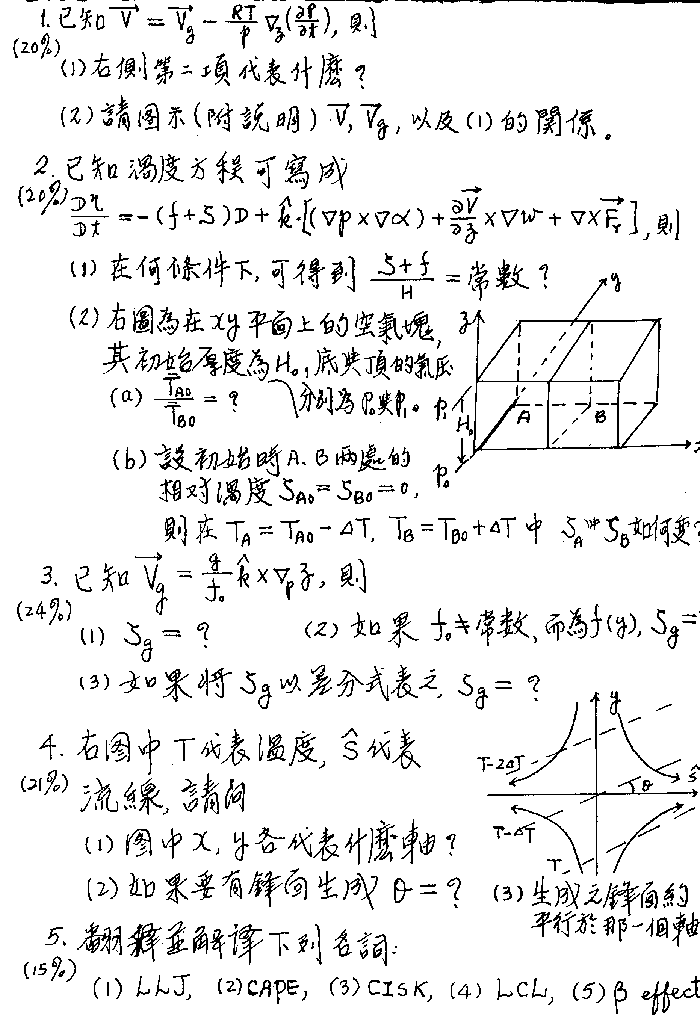 1. 已知 V⃗ = V⃗g - RT/p ∇z(∂P/∂t), 則
(20%)
(1) 右側第二項代表什麼?
(2) 請図示(附說明) V⃗, V⃗g, 以及(1)的関係。
2. 已知渦度方程可寫成
(20%)
Dη/Dt = -(f+ζ)D + k̂·[(∇p×∇α) + ∂V⃗/∂z ×∇w + ∇×F⃗r], 則
(1) 在何條件下, 可得到 (ζ+f)/H = 常數?
(2) 右圖為在xy平面上的空氣塊,
其初始厚度為H₀, 底與頂的氣压
分別為P₀與P₁。
(a) T̄A0/T̄B0 = ?
(b) 設初始時A、B兩處的
相对渦度 ζA0 = ζB0 = 0,
則在 TA = TA0 - ΔT, TB = TB0 + ΔT 中 ζA與ζB如何变?
z y x A B P₁ H₀ P₀
3. 已知 V⃗g = g/f₀ k̂ × ∇p z, 則
(24%)
(1) ζg = ? (2) 如果 f₀ ≠ 常數, 而為f(y), ζg =
(3) 如果將 ζg 以差分式表之, ζg = ?
4. 右图中 T代表溫度, Ŝ代表
(21%)
流線, 請问
(1) 图中 x, y各代表什麼軸?
(2) 如果要有鋒面生成 θ = ? (3) 生成之鋒面約
平行於那一個軸
y T-2ΔT θ Ŝ T-ΔT T
5. 翻譯並解譯下列名詞:
(15%)
(1) LLJ, (2) CAPE, (3) CISK, (4) LCL, (5) β effect